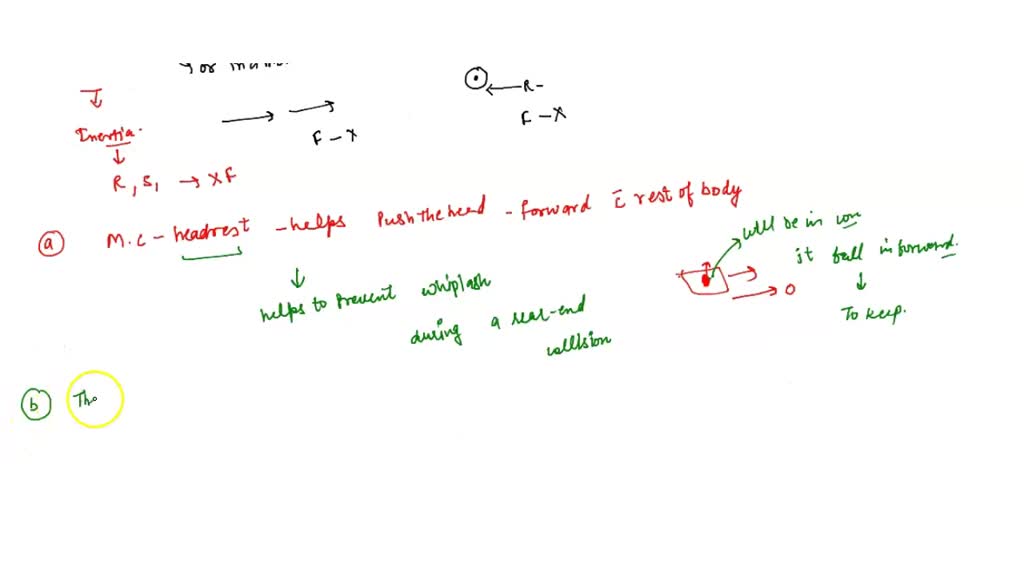 For
R -
F - X
F - X
Inertia.
R, S, → XF
(a) M.C - headrest - helps Push the head - forward c̄ rest of body
will be in
it fall in forward.
helps to prevent whiplash
during a rear-end
collision
O
To keep.
(b) The